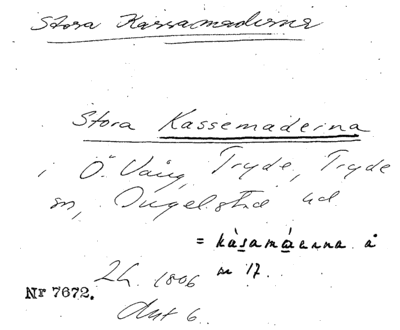 Stora Kassamaderna
Stora Kassemaderna
i Ö. Vång, Tryde, Tryde
sn, Ingelstad hd
= kàsamáerna å
m 17.
Lh. 1806
Nr 7672.
Akt 6.